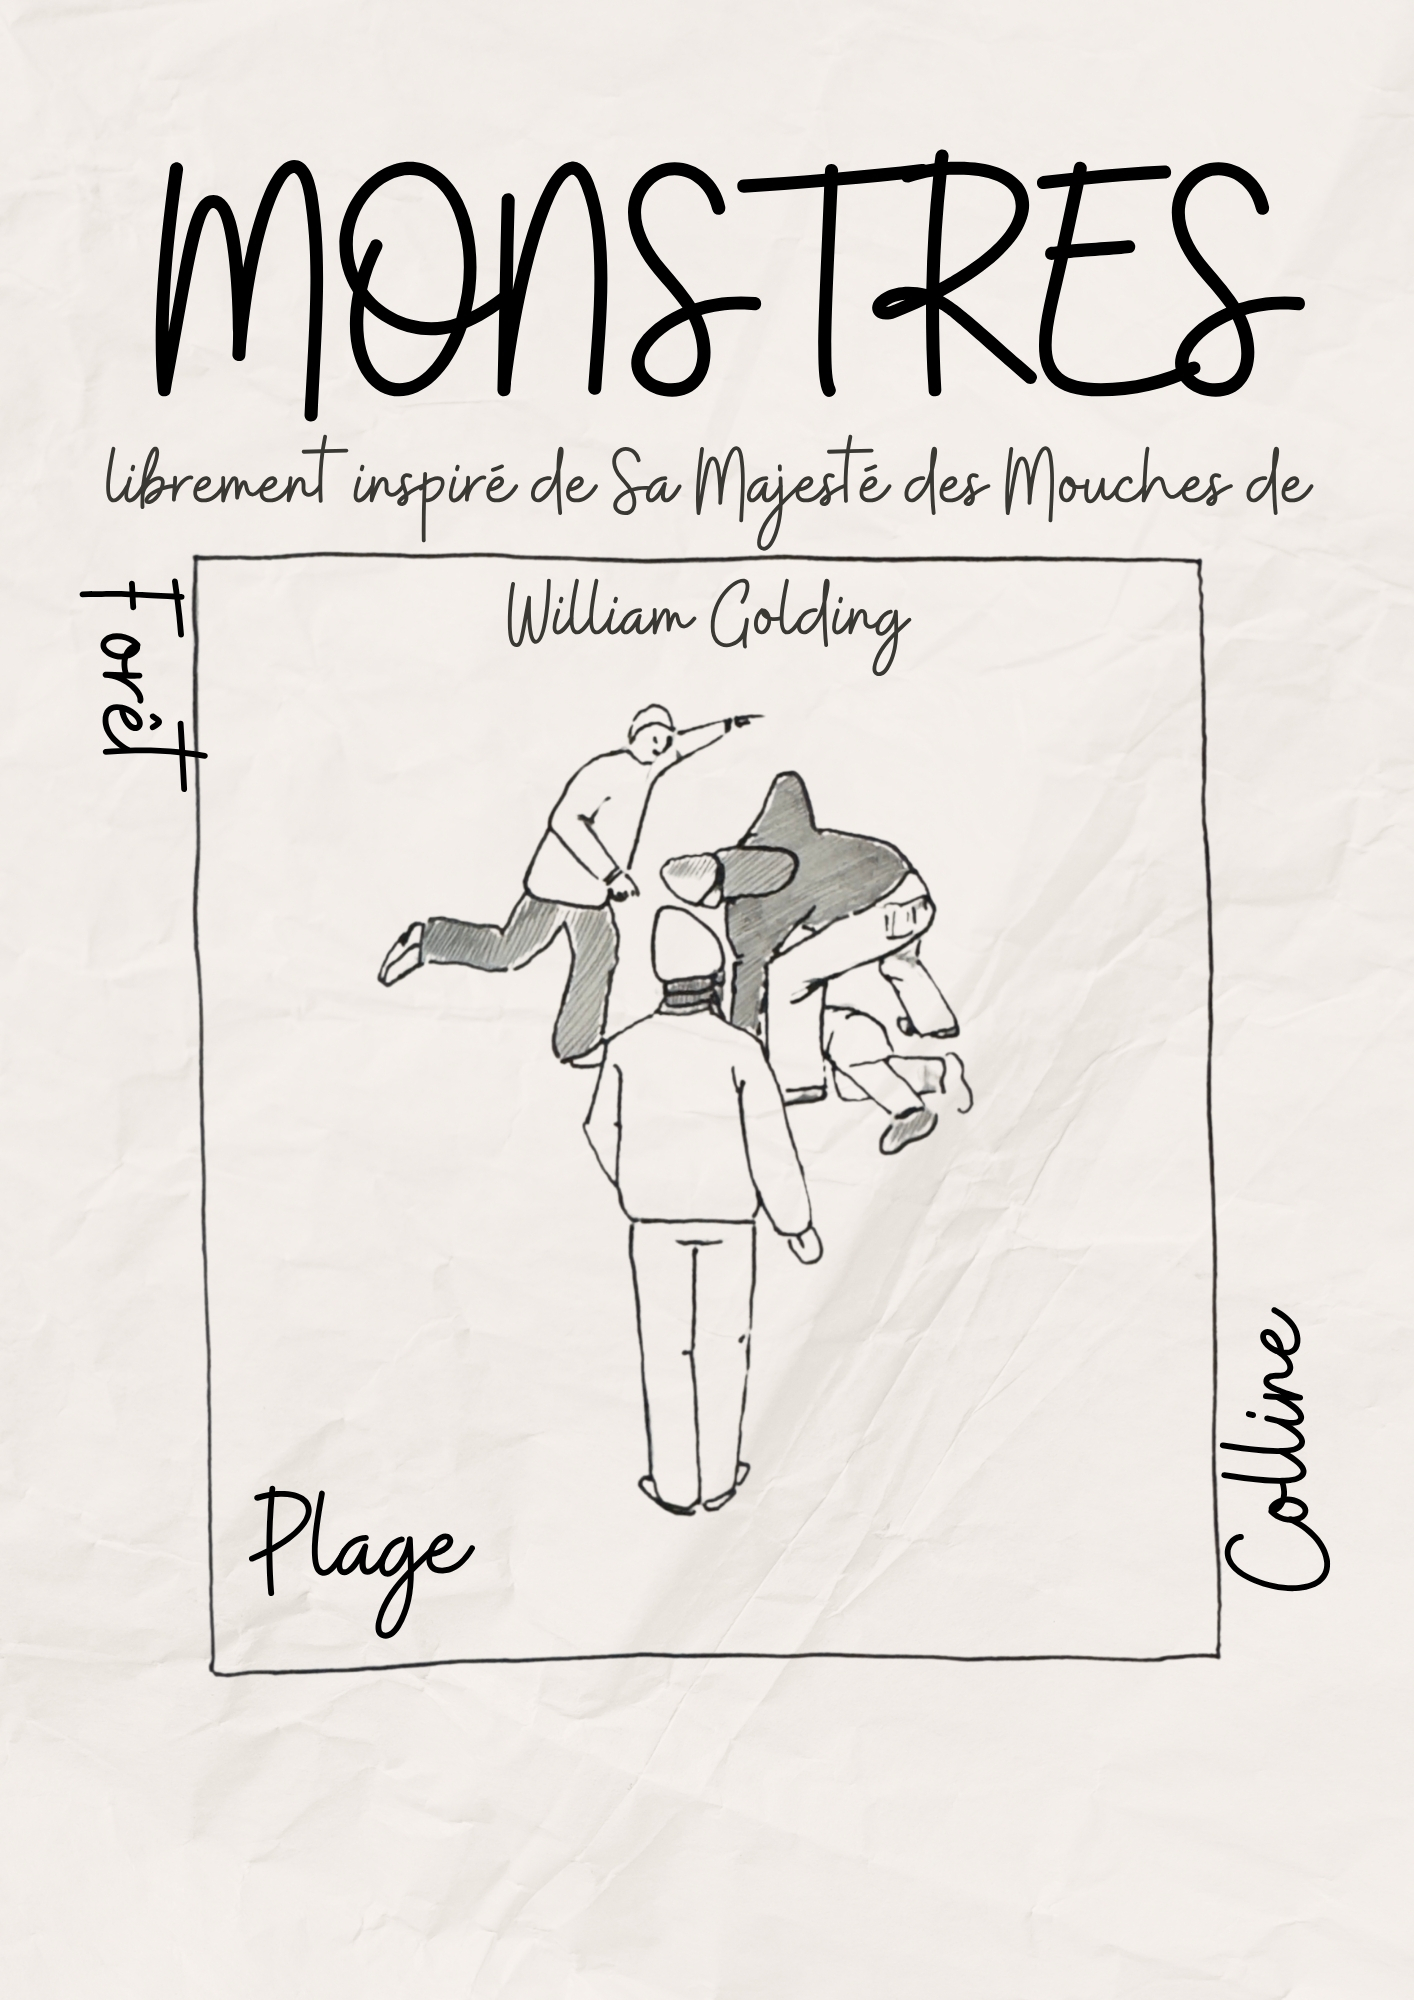 MONSTRES
librement inspiré de Sa Majesté des Mouches de
William Golding
Forêt
Colline
Plage